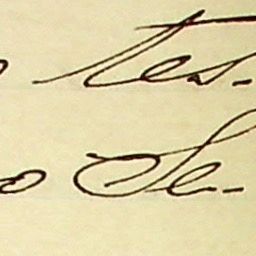 o tes-
o Se-